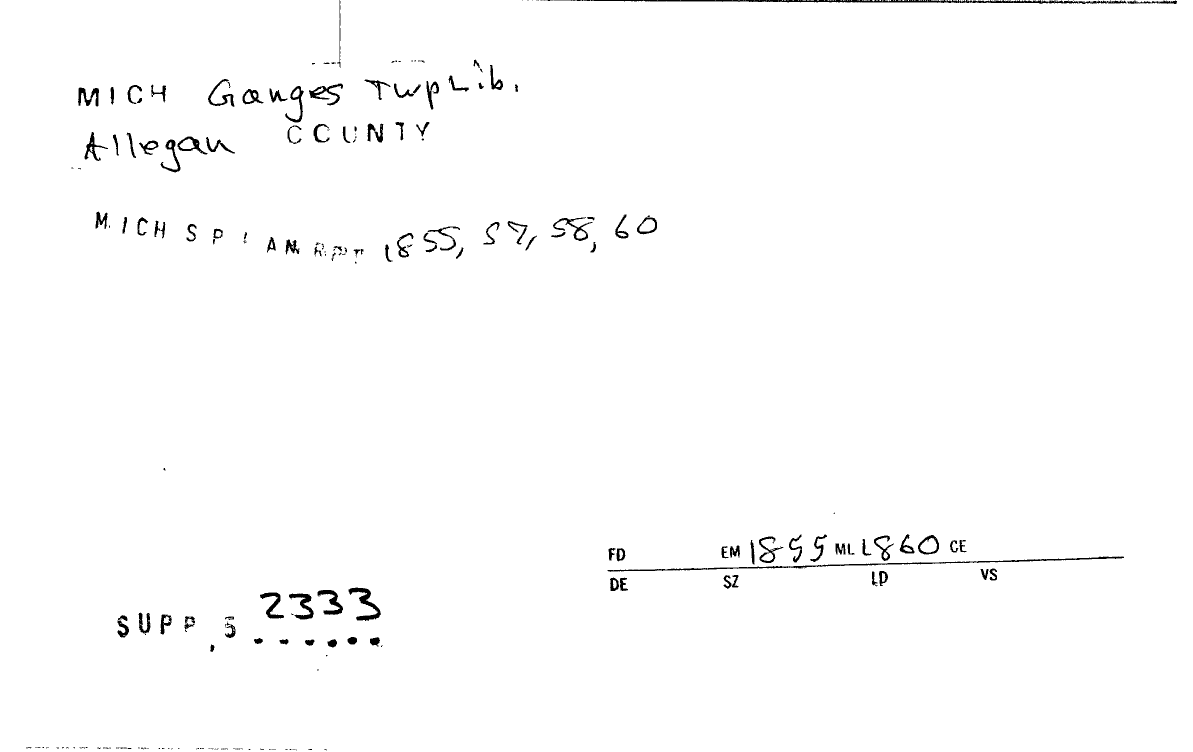 MICH Ganges Twp Lib.
Allegan COUNTY
MICH S P I AN RPT 1855, 57, 58, 60
FD EM 1855 ML 1860 CE
DE SZ LD VS
SUPP, 5 2333